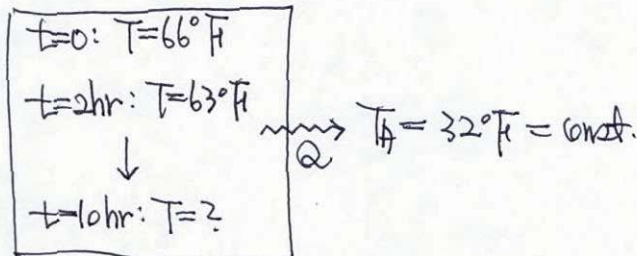 t=0: T=66°F
t=2hr: T=63°F
↓
t=10hr: T=?
Q
T_A = 32°F = const.